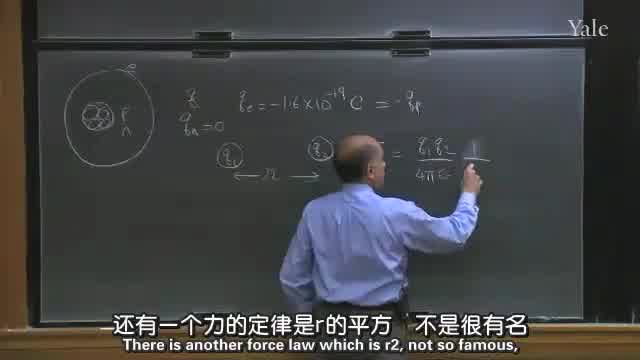 Yale
e
q
n
q_e = -1.6 × 10^-19 C = -q_p
P
n
q_n = 0
q_1
q_2
= q_1 q_2 / 4π 1
← r →
还有一个力的定律是r的平方 不是很有名
There is another force law which is r2, not so famous,